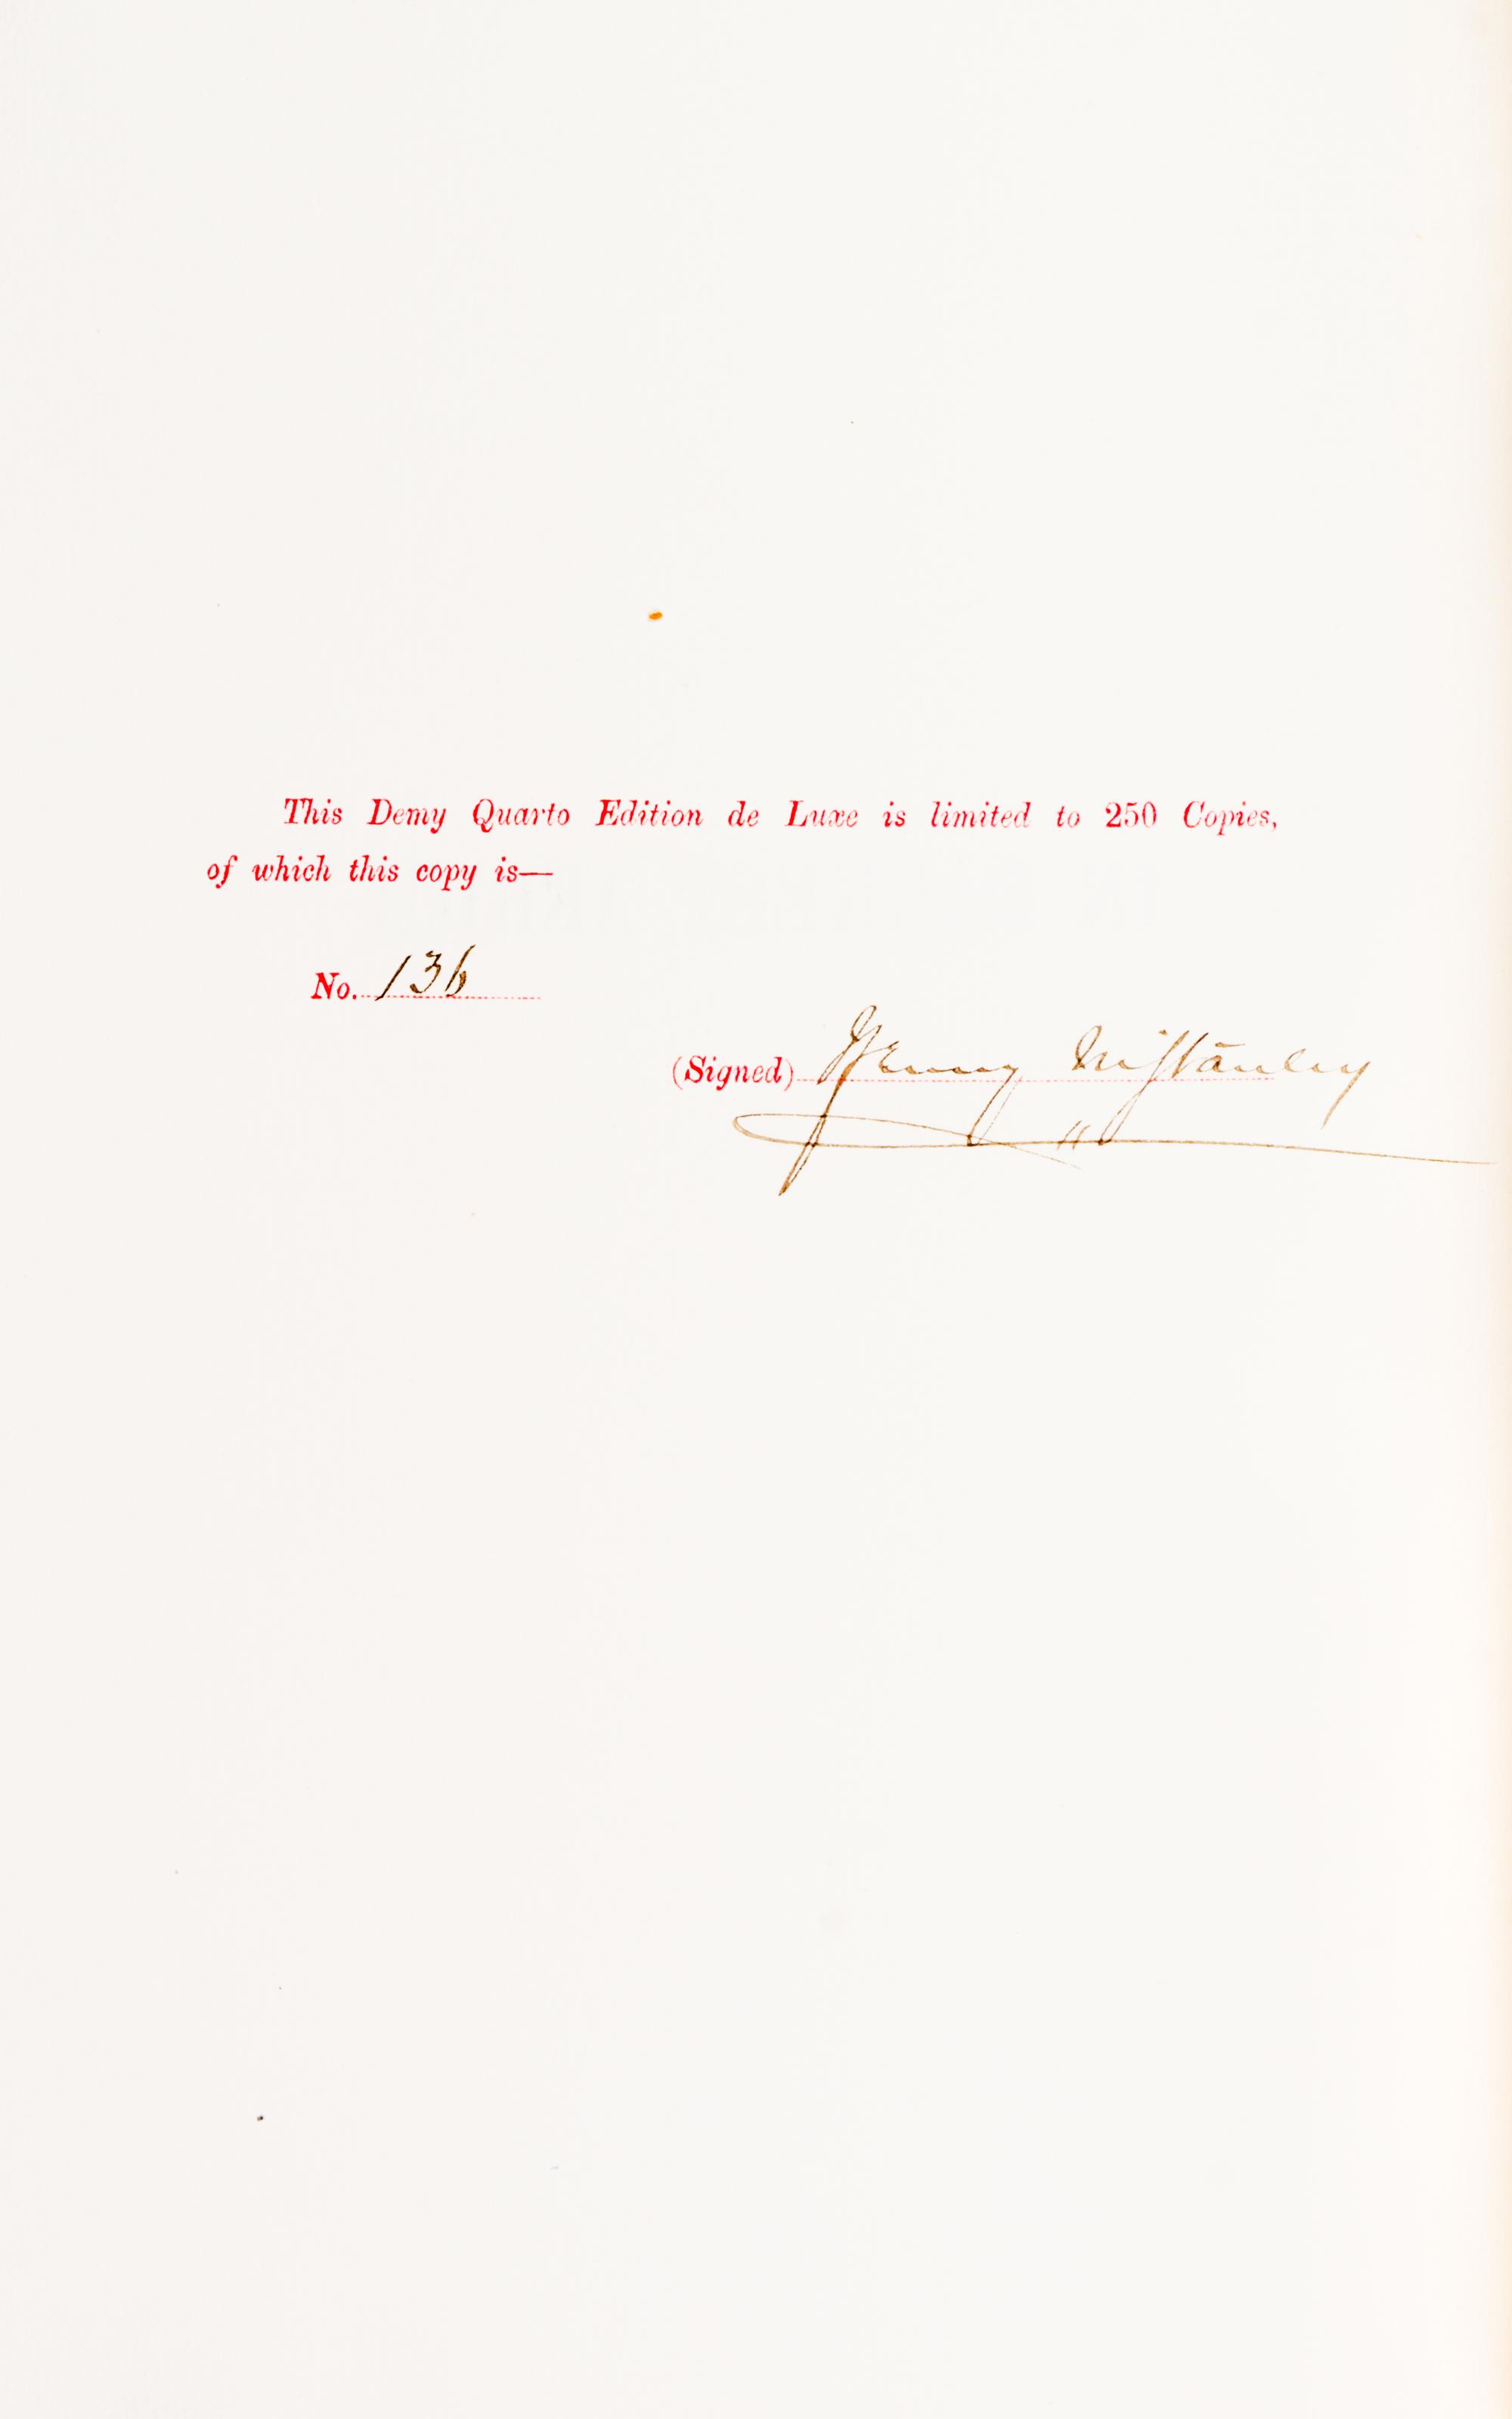 This Demy Quarto Edition de Luxe is limited to 250 Copies,
of which this copy is—
No. 136
(Signed) Henry M Stanley